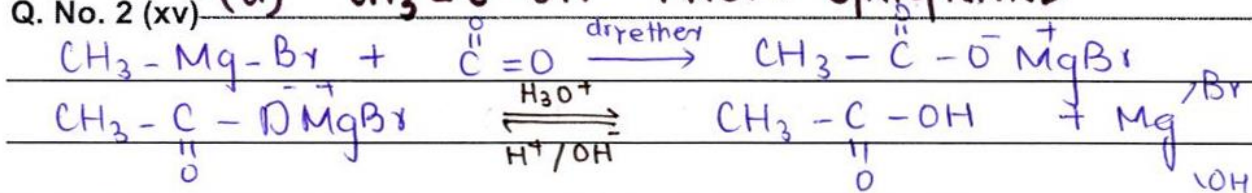 Q. No. 2 (xv)
O O
CH₃ - Mg - Br + C = O dry ether → CH₃ - C - O⁻ M⁺gBr
CH₃ - C - O⁻M⁺gBr H₃O⁺ ⇌ H⁺/OH⁻ CH₃ - C - OH + Mg Br
O O OH